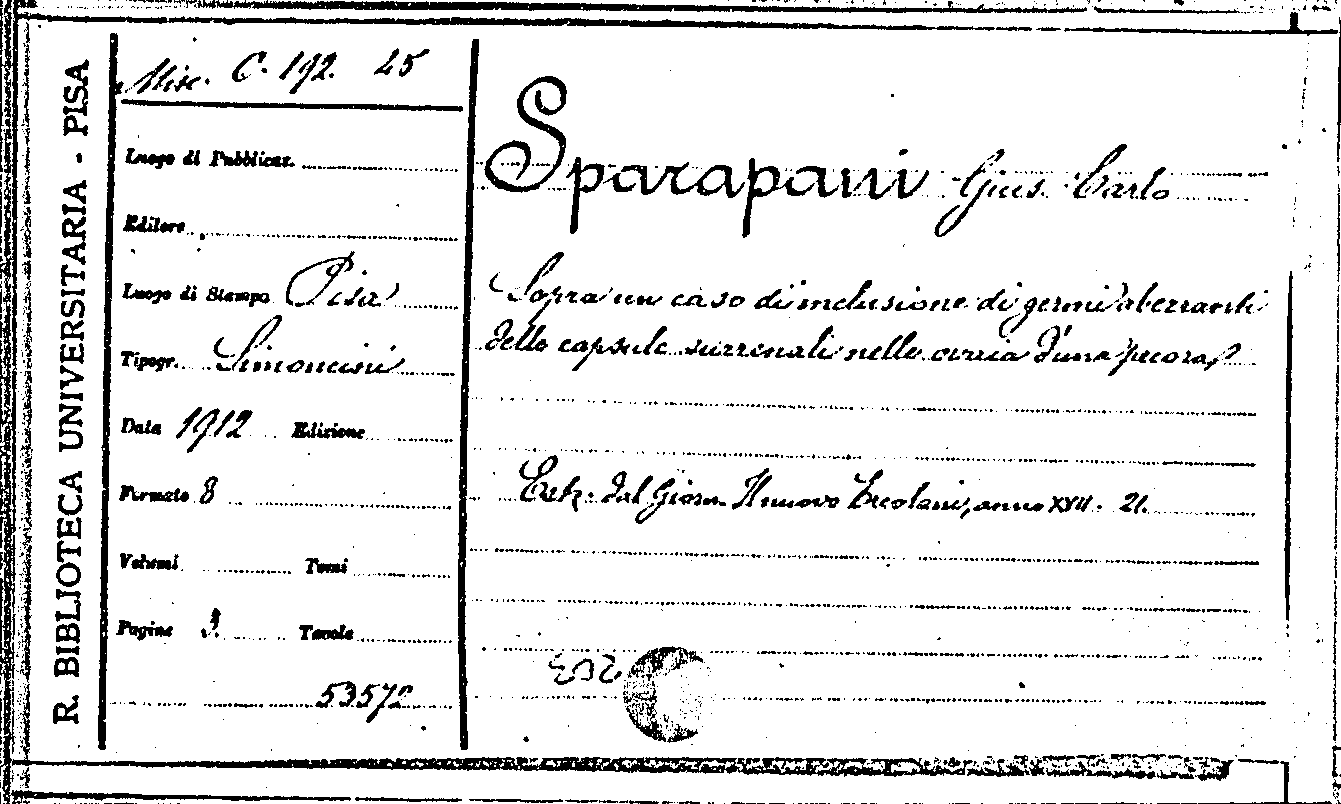 R. BIBLIOTECA UNIVERSITARIA - PISA
Misc. C. 192. 45
Luogo di Pubblicaz.
Editore
Luogo di Stampa Pisa
Tipogr. Simoncini
Data 1912 Edizione
Formato 8
Volumi Tomi
Pagine Tavole
53572
Sparapani Gius. Carlo
Sopra un caso di inclusione di germi aberranti
delle capsule surrenali nelle ovaia d'una pecora
Estr. dal Giorn. Il nuovo Ercolani, anno XVII. 21.